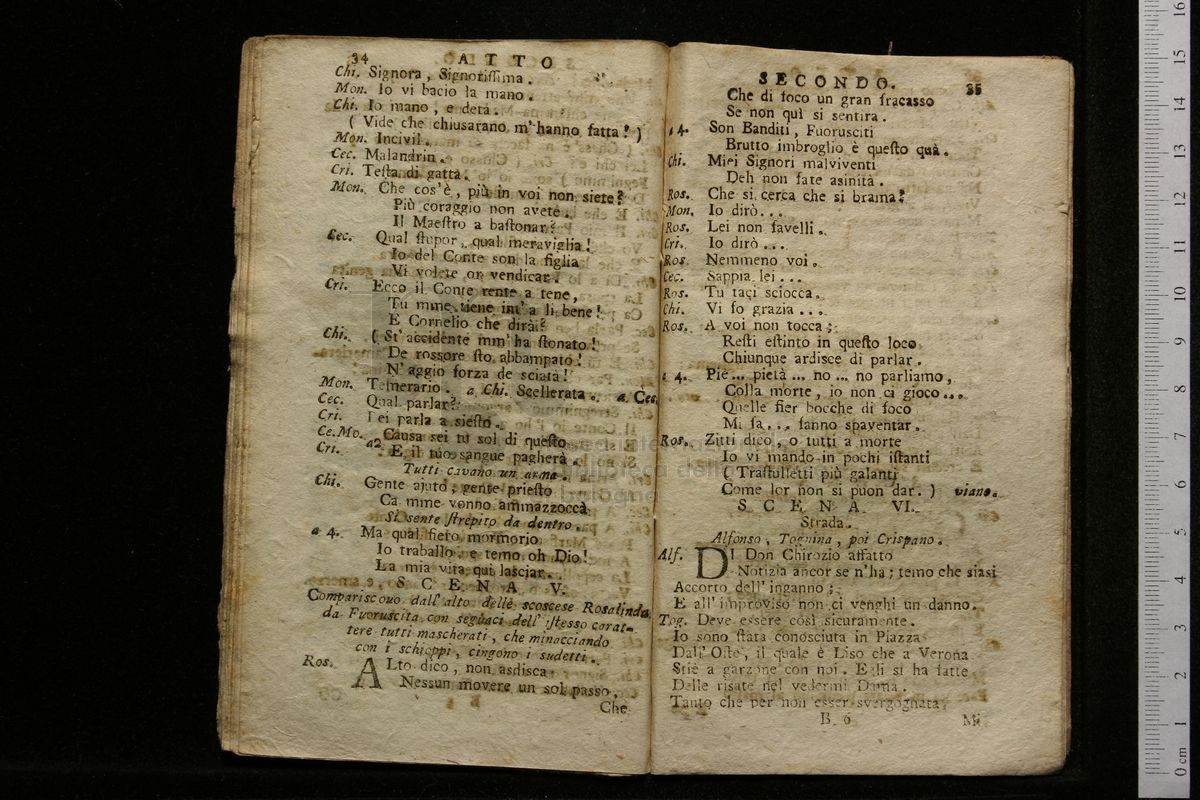 34 ATTO
Chi. Signora, Signorissima.
Mon. Io vi bacio la mano.
Chi. Io mano, e deta.
( Vide che chiusarano m'hanno fatta! )
Mon. Incivil.
Cec. Malandrin.
Cri. Testa di gatta.
Mon. Che cos'è, più in voi non siete?
Più coraggio non avete.
Il Maestro a bastonar?
Cec. Qual stupor, qual meraviglia!
Io del Conte son la figlia
Vi volete or vendicar.
Cri. Ecco il Conte rente a tene,
Tu mme tiene int' a li bene!
E Cornelio che dirà?
Chi. ( St'accidente mm'ha stonato!
De rossore sto abbampato!
N'aggio forza de sciatà!
Mon. Temerario. a Chi. Scellerata. a Ces.
Cec. Qual parlar?
Cri. Lei parla a siesto.
Ce.Mo. Causa sei tu sol di questo
Cri. a2 E il tuo sangue pagherà.
Tutti cavano un arma.
Chi. Gente ajuto, gente priesto
Ca mme vonno ammazzoccà
Si sente strepito da dentro.
a 4. Ma qual fiero mormorio
Io traballo, e temo oh Dio!
La mia vita qui lasciar.
SCENA V.
Compariscono dall'alto delle scoscese Rosalinda
da Fuoruscita con seguaci dell'istesso carat-
tere tutti mascherati, che minacciando
con i schioppi, cingono i sudetti.
Ros. ALto dico, non asdisca
Nessun movere un sol passo,
Che
SECONDO. 35
Che di foco un gran fracasso
Se non quì si sentira.
a 4. Son Banditi, Fuorusciti
Brutto imbroglio è questo quà.
Chi. Miei Signori malviventi
Deh non fate asinità.
Ros. Che si cerca che si brama?
Mon. Io dirò...
Ros. Lei non favelli.
Cri. Io dirò...
Ros. Nemmeno voi.
Cec. Sappia lei...
Ros. Tu taci sciocca.
Chi. Vi fo grazia...
Ros. A voi non tocca;
Resti estinto in questo loco
Chiunque ardisce di parlar.
a 4. Piè... pietà ... no ... no parliamo,
Colla morte, io non ci gioco...
Quelle fier bocche di foco
Mi fa... fanno spaventar.
Ros. Zitti dico, o tutti a morte
Io vi mando in pochi istanti
( Trastulletti più galanti
Come lor non si puon dar. ) viano.
SCENA VI.
Strada.
Alfonso, Tognina, poi Crispano.
Alf. DI Don Chirozio affatto
Notizia ancor se n'ha; temo che siasi
Accorto dell'inganno;
E all'improviso non ci venghi un danno.
Tog. Deve essere così sicuramente.
Io sono stata conosciuta in Piazza
Dall'Oste, il quale è Liso che a Verona
Stiè a garzone con noi. Egli si ha fatte
Delle risate nel vedermi Dama.
Tanto che per non esser svergognata,
B 6 Mi